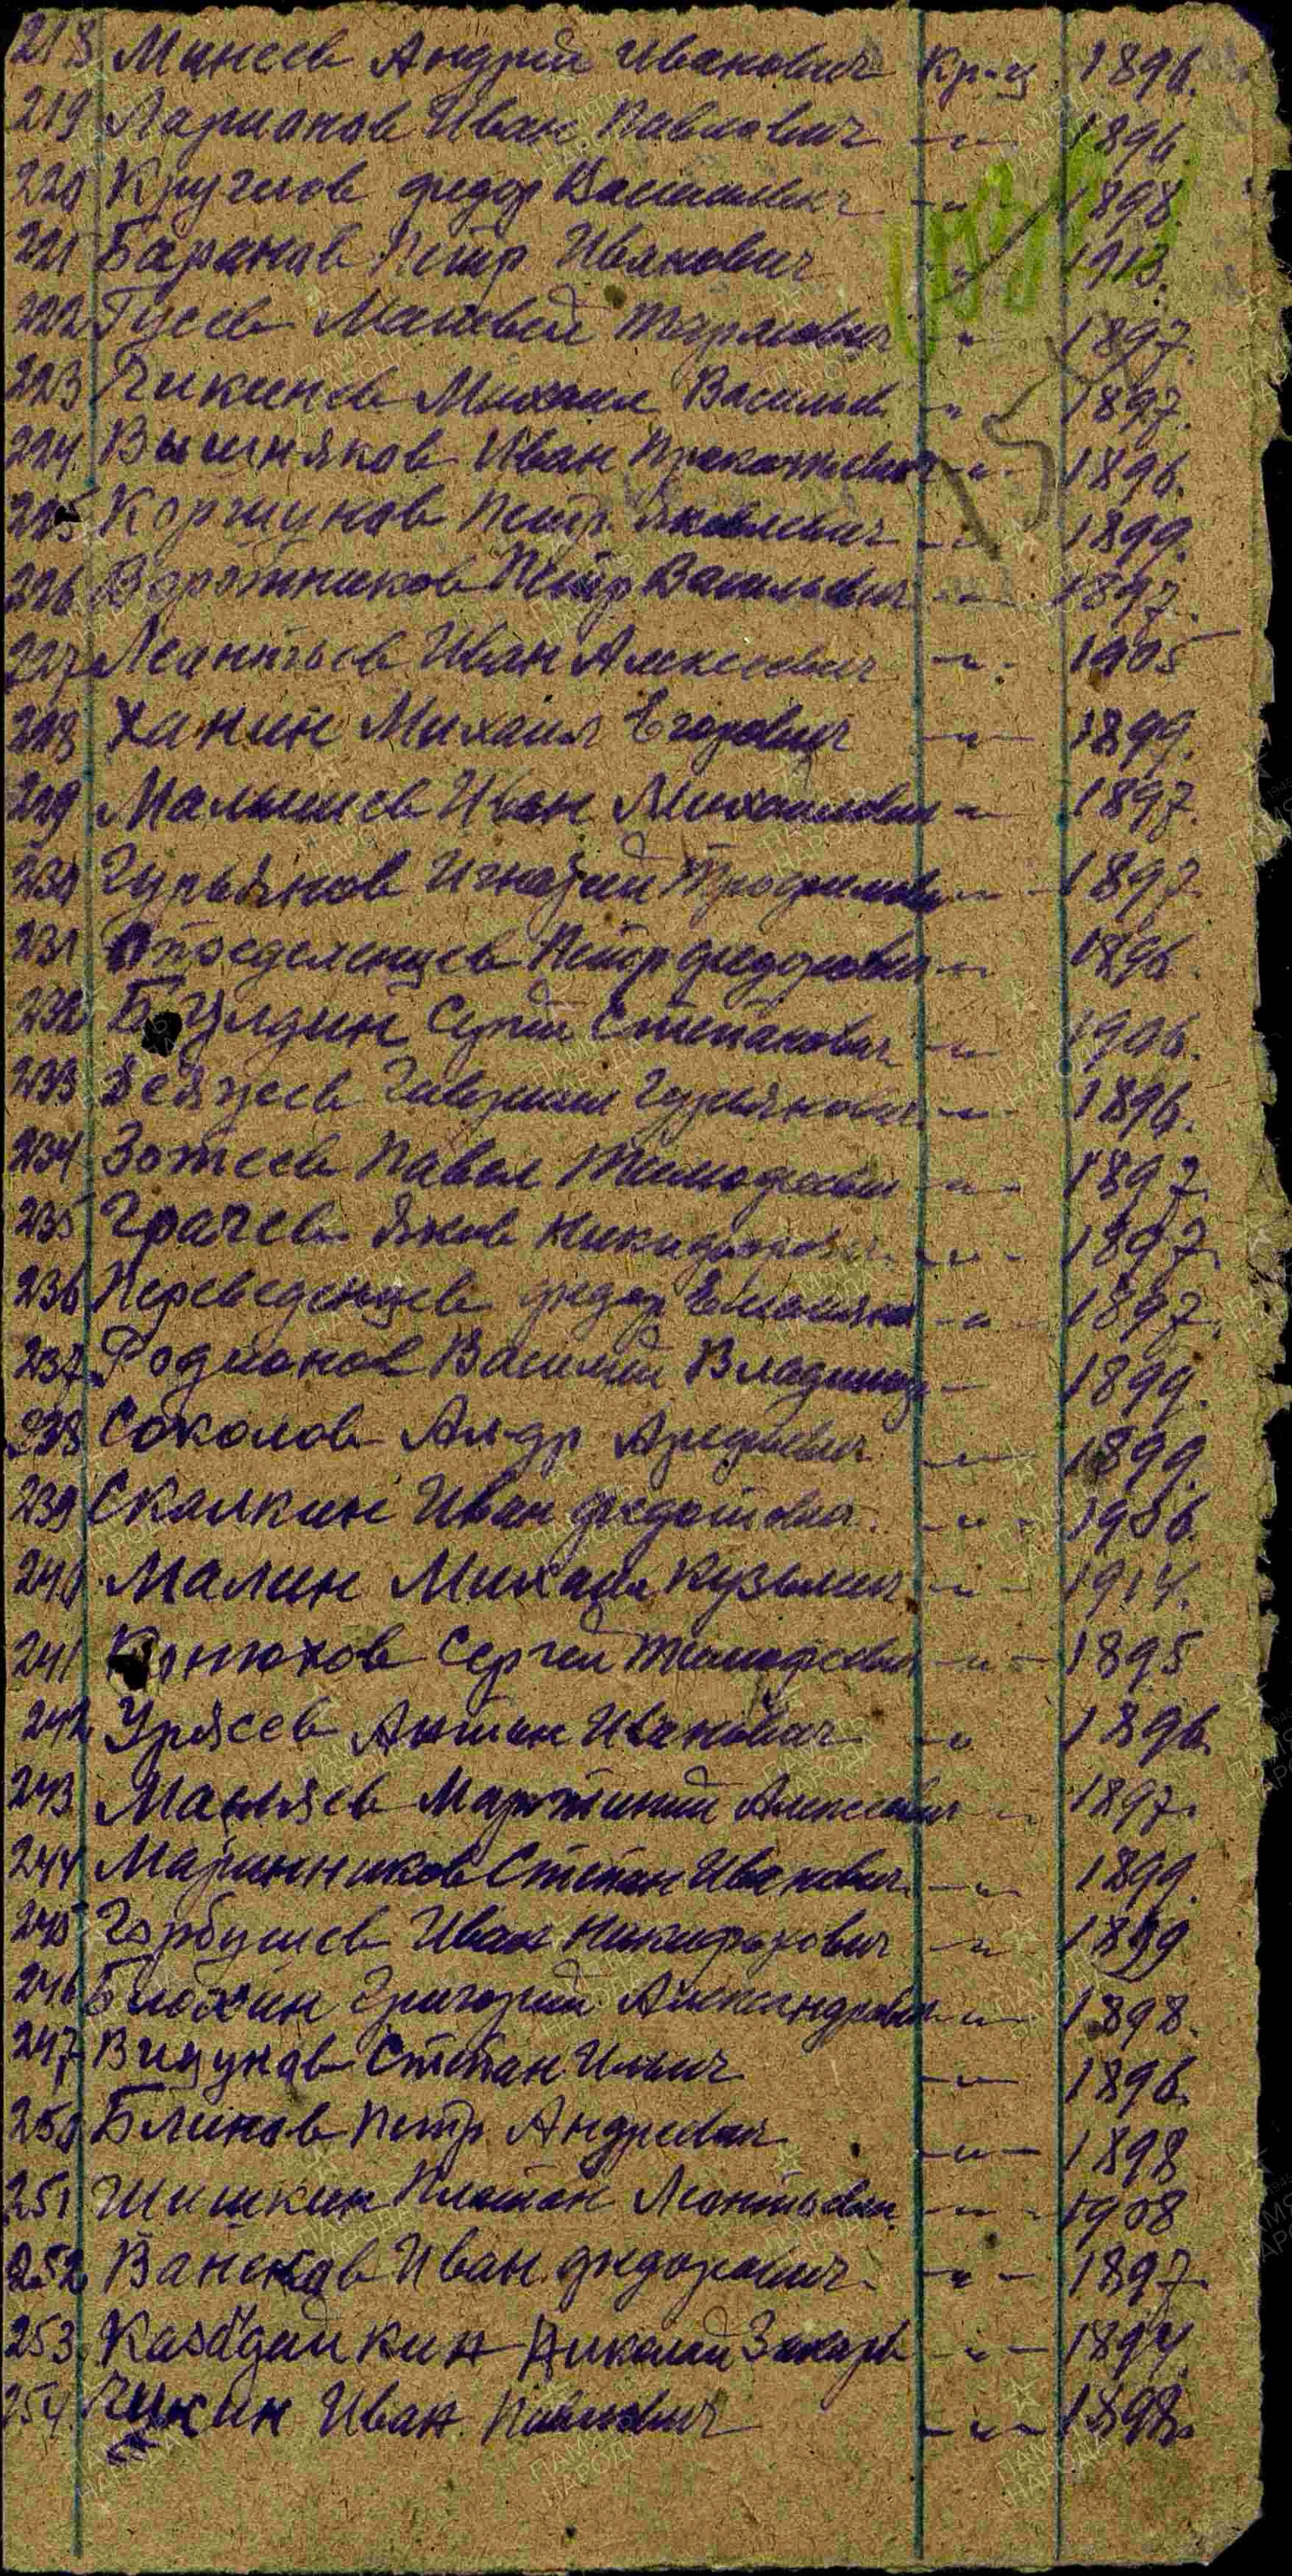 218 Минеев Андрей Иванович Кр-ц 1896.
219 Ларионов Иван Павлович -"- 1896.
220 Круглов Федор Васильевич -"- 1898.
221 Баранов Петр Иванович -"- 1913.
222 Гусев Матвей -"- 1897.
223 Чикинов Михаил Васильев -"- 1897.
224 Вышняков Иван -"- 1896.
225 Коршунов Петр Яковлевич -"- 1899.
226 Воротников Петр Васильевич -"- 1897.
227 Леонтьев Иван Алексеевич -"- 1905
228 Ханин Михаил Егорович -"- 1899.
229 Малышев Иван Михайлович -"- 1897.
230 Гурьянов Игнатий Трофимович -"- 1897.
231 Петр Федорович -"- 1896.
232 Булдин Сергей Степанович -"- 1906.
233 Гурьянович -"- 1896.
234 Зотеев Павел Тимофеевич -"- 1897.
235 Грачев Яков Никифорович -"- 1897.
236 Переведенцев Федор Емельянов -"- 1897.
237 Родионов Василий Владимир -"- 1899.
238 Соколов Ал-др Арефьевич -"- 1899.
239 Скалкин Иван Федотович -"- 1906.
240 Малин Михаил Кузьмич -"- 1914.
241 Конюхов Сергей Тимофеевич -"- 1895
242 Урясев Антон Иванович -"- 1896.
243 Масляев Алексеевич -"- 1897.
244 Степан Иванович -"- 1899.
245 Горбушев Иван Никифорович -"- 1899
246 Блохин Григорий Александрович -"- 1898.
247 Степан Ильич -"- 1896.
250 Блинов Петр Андреевич -"- 1898
251 Шишкин Платон Леонтьевич -"- 1908
252 Ванюков Иван Федорович -"- 1897.
253 Николай Захаров -"- 1894.
254 Чикин Иван Павлович -"- 1898.